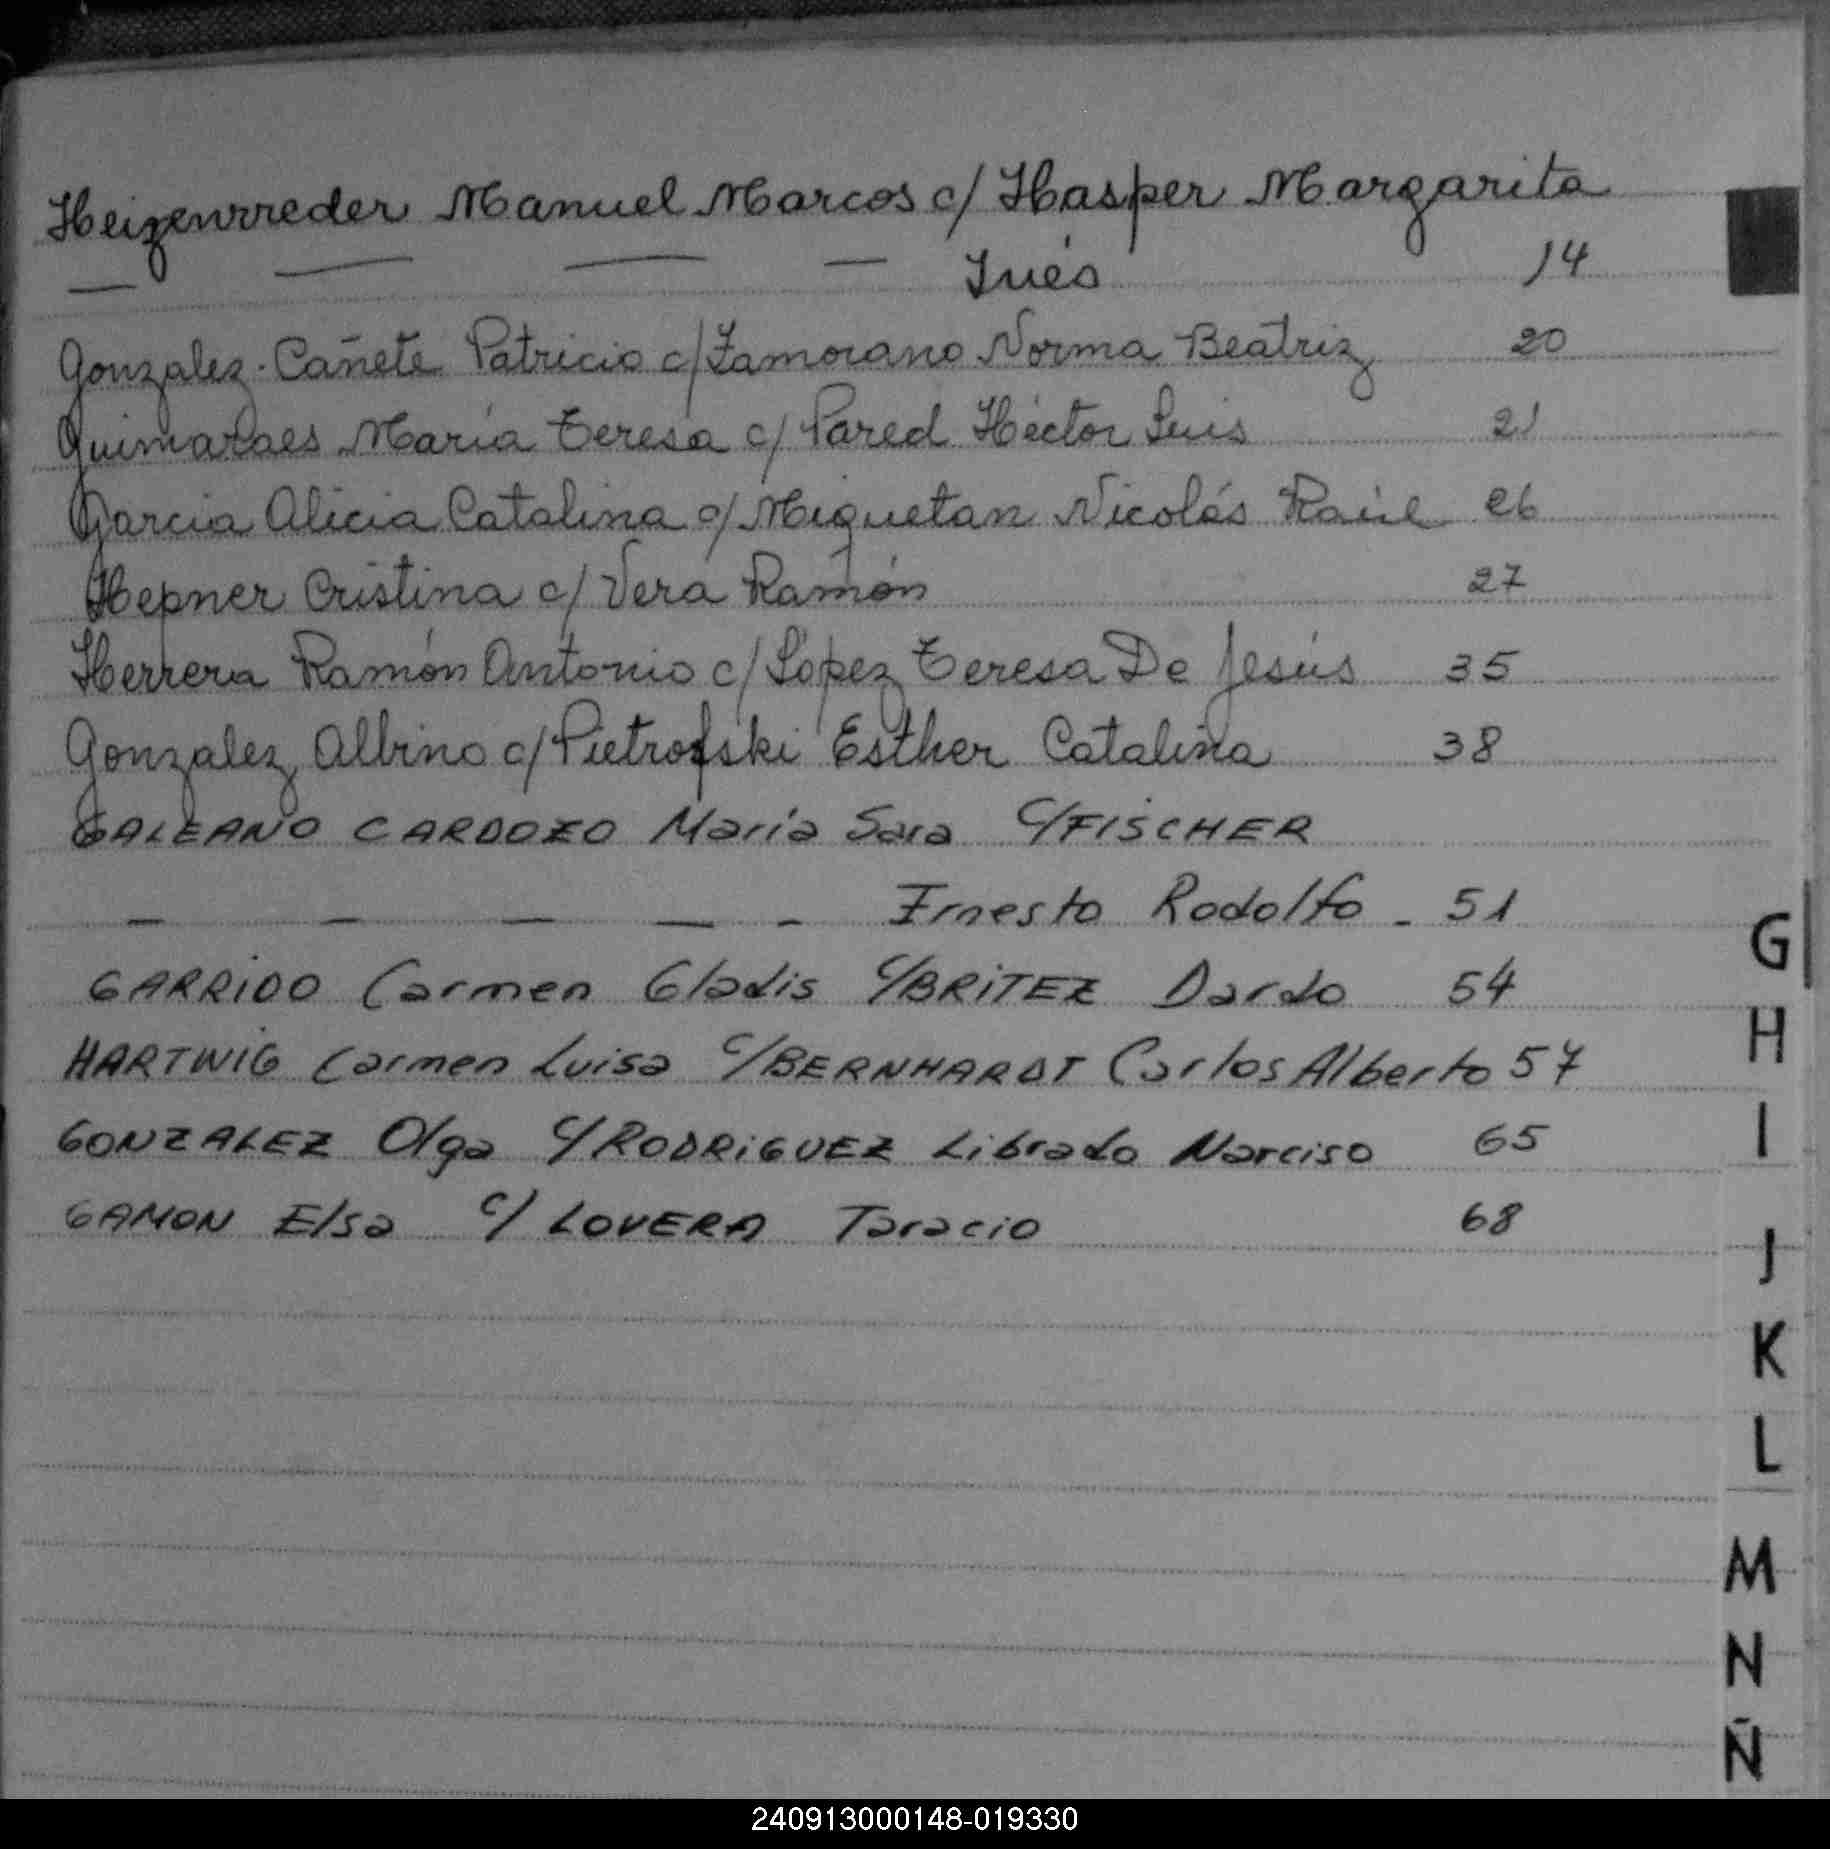 Heizenrreder Manuel Marcos c/ Hasper Margarita
— — — — Inés 14
Gonzalez Cañete Patricio c/ Zamorano Norma Beatriz 20
Guimaraes María Teresa c/ Pared Héctor Luis 21
Garcia Alicia Catalina c/ Miguetan Nicolás Raúl 26
Hepner Cristina c/ Vera Ramón 27
Herrera Ramón Antonio c/ López Teresa De Jesús 35
Gonzalez Albino c/ Pietrofski Esther Catalina 38
GALEANO CARDOZO María Sara C/FISCHER
— — — — - Ernesto Rodolfo - 51
GARRIDO Carmen Gladis C/BRITEZ Dardo 54
HARTWIG Carmen Luisa C/BERNHARDT Carlos Alberto 57
GONZALEZ Olga C/RODRIGUEZ Librado Narciso 65
GAMON Elsa C/ LOVERA Taracio 68
G
H
I
J
K
L
M
N
Ñ
240913000148-019330